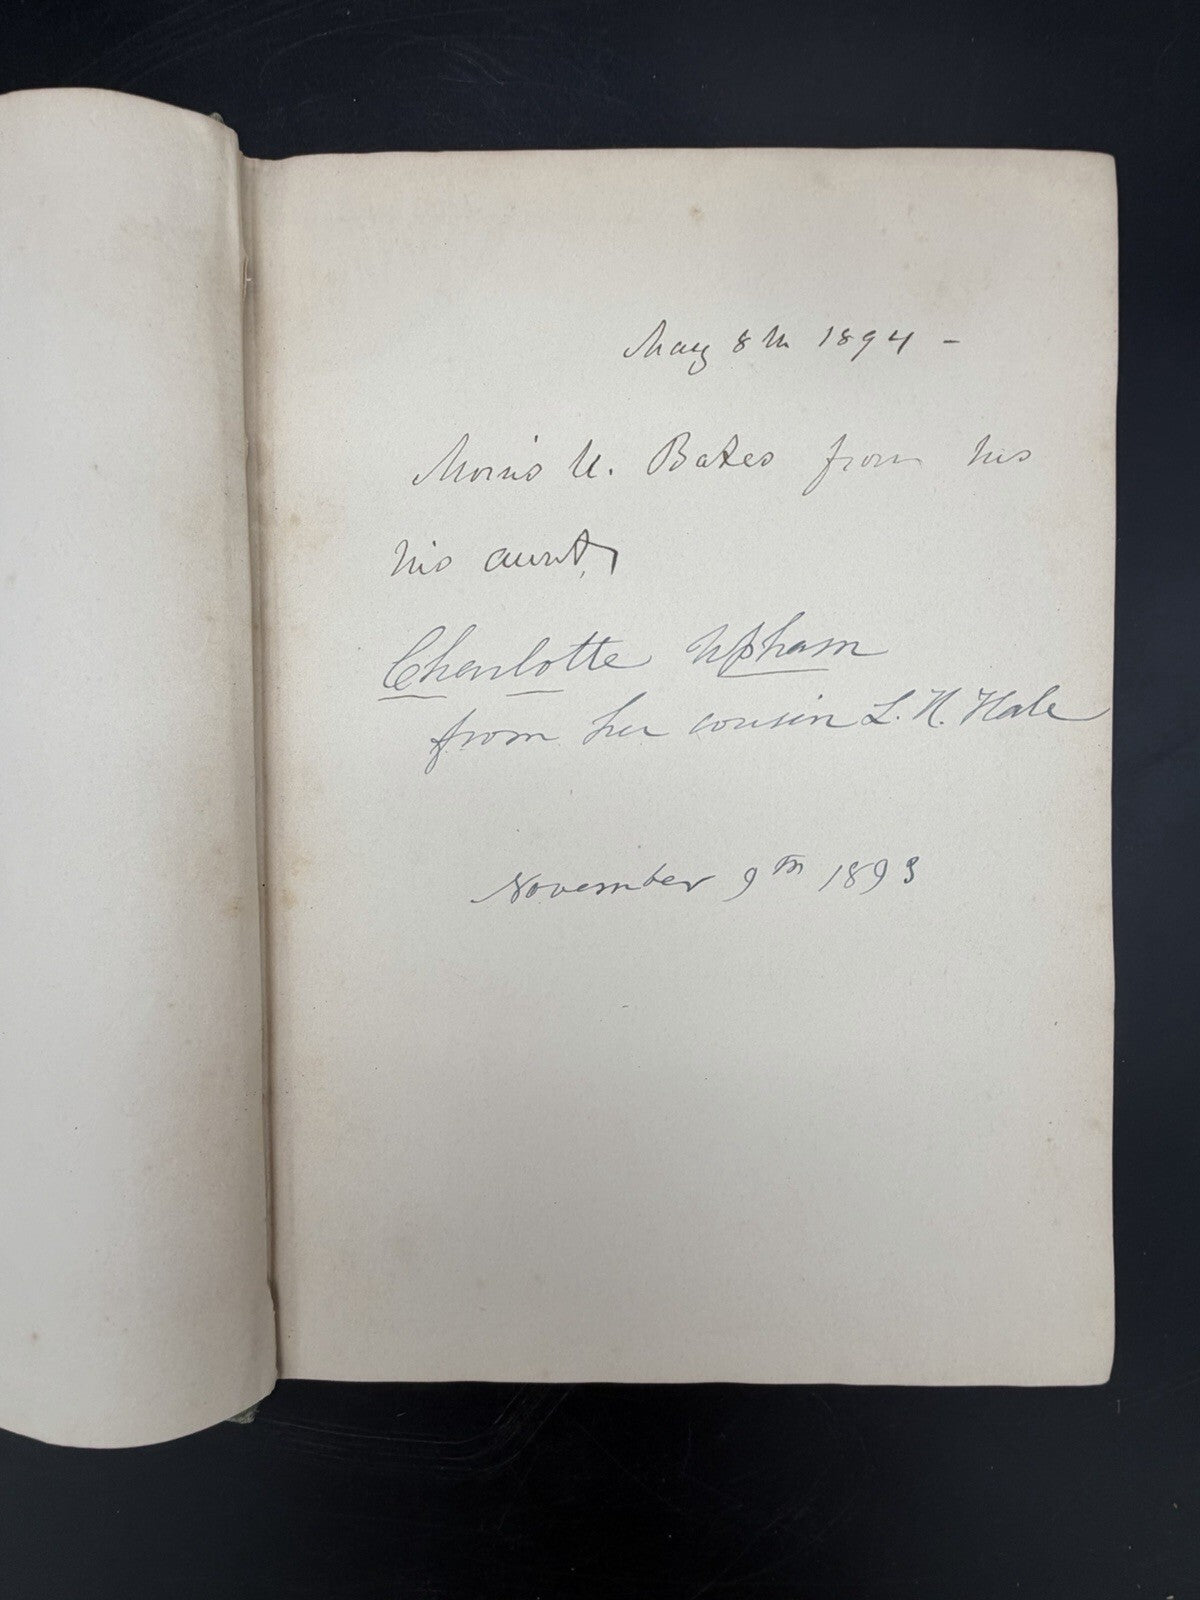 May 8th 1894 -
Morris U. Bates from his
his aunt,
Charlotte Upham
from her cousin L. N. Hale
November 9th 1893